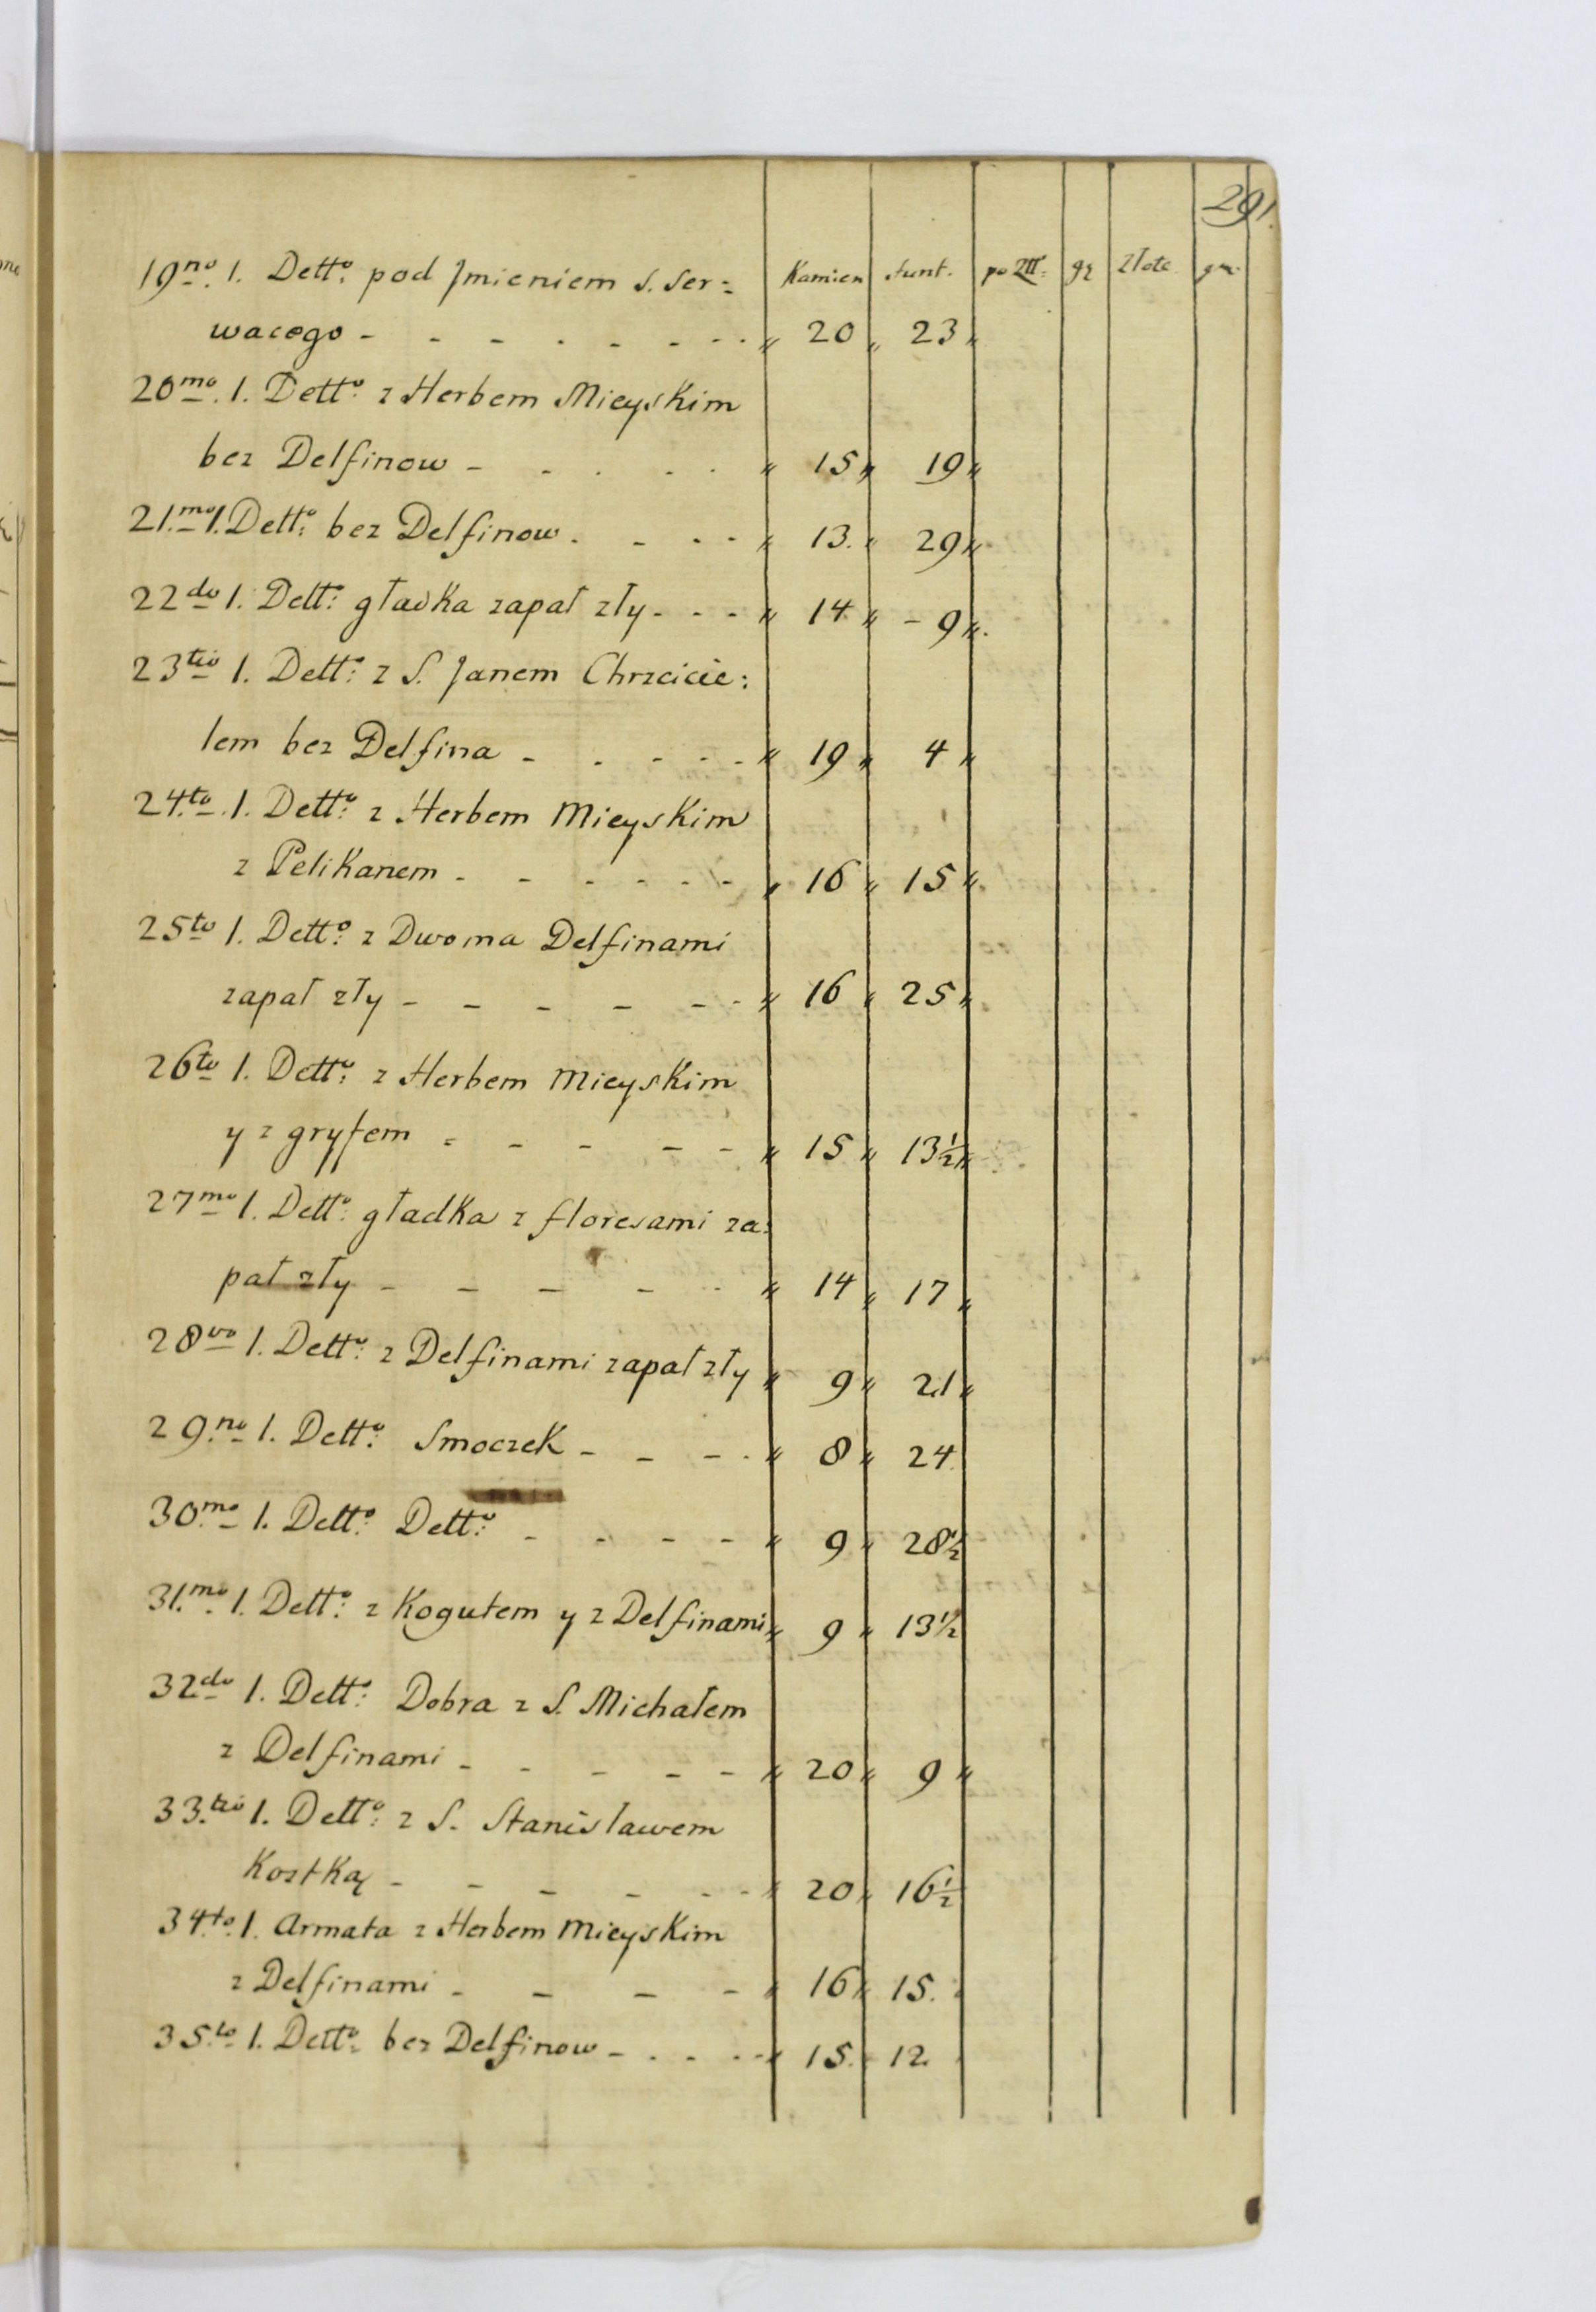 291.
Kamien funt. po Złł: gr Złote gr.
19no. 1. Detto: pod Jmieniem S. Ser=
wacego - - - - - - - - " 20 " 23 "
20mo. 1. Detto: z Herbem Mieyskim
bez Delfinow - - - - - " 15 " 19 "
21.mo 1. Detto: bez Delfinow. - - - " 13. " 29 "
22do 1. Detto: gładka zapał zły - - - " 14 " - 9 ".
23tio 1. Detto: z S. Janem Chrzcicie:
lem bez Delfina - - - - - " 19 " 4 "
24.to. 1. Detto: z Herbem Mieyskim
z Pelikanem - - - - - - " 16 " 15 "
25to 1. Detto: z Dwoma Delfinami
zapał zły - - - - - - " 16 " 25 "
26to 1. Detto: z Herbem Mieyskim
y z gryfem - - - - - " 15 " 13½ "
27mo 1. Detto: gładka z floresami za:
pał zły - - - - - " 14 " 17 "
28vo 1. Detto: z Delfinami zapał zły " 9 " 21 "
29.no 1. Detto: Smoczek - - - - " 8 " 24.
30.mo 1. Detto: Detto: - - - - " 9 " 28½
31.mo 1. Detto: z Kogutem y z Delfinami " 9 " 13½
32do 1. Detto: Dobra z S. Michałem
z Delfinami - - - - - " 20 " 9 "
33.tio 1. Detto: z S. Stanisławem
Kostką - - - - - - " 20 " 16½
34.to. 1. Armata z Herbem Mieyskim
z Delfinami - - - - " 16 " 15.
35.to 1. Detto: bez Delfinow - - - - - " 15. " 12